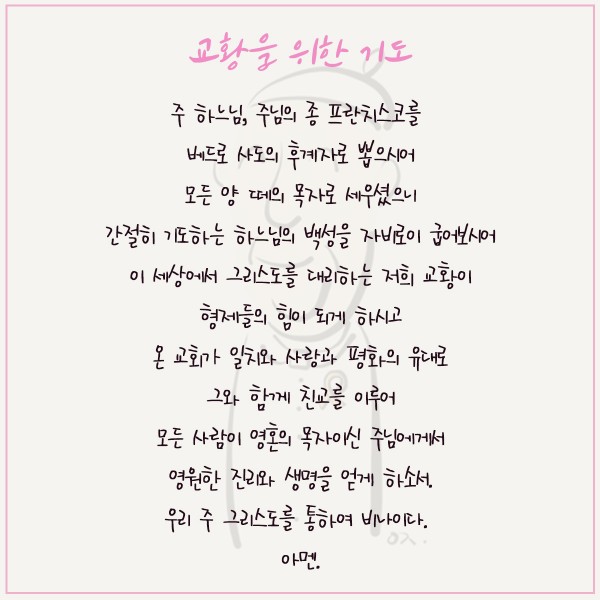 교황을 위한 기도
주 하느님, 주님의 종 프란치스코를
베드로 사도의 후계자로 뽑으시어
모든 양 떼의 목자로 세우셨으니
간절히 기도하는 하느님의 백성을 자비로이 굽어보시어
이 세상에서 그리스도를 대리하는 저희 교황이
형제들의 힘이 되게 하시고
온 교회가 일치와 사랑과 평화의 유대로
그와 함께 친교를 이루어
모든 사람이 영혼의 목자이신 주님에게서
영원한 진리와 생명을 얻게 하소서.
우리 주 그리스도를 통하여 비나이다.
아멘.